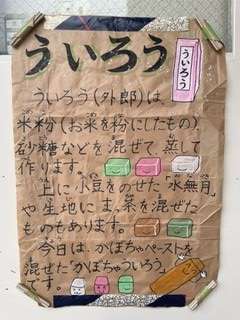 ういろう
ういろう
ういろう(外郎)は、
米粉(お米を粉にしたもの)
砂糖などを混ぜて、蒸して
作ります。
上に小豆をのせた"水無月"
や生地にま,茶を混ぜた
ものもあります。
今日は、かぼちゃペーストを
混ぜた"かぼちゃういろう"
です。